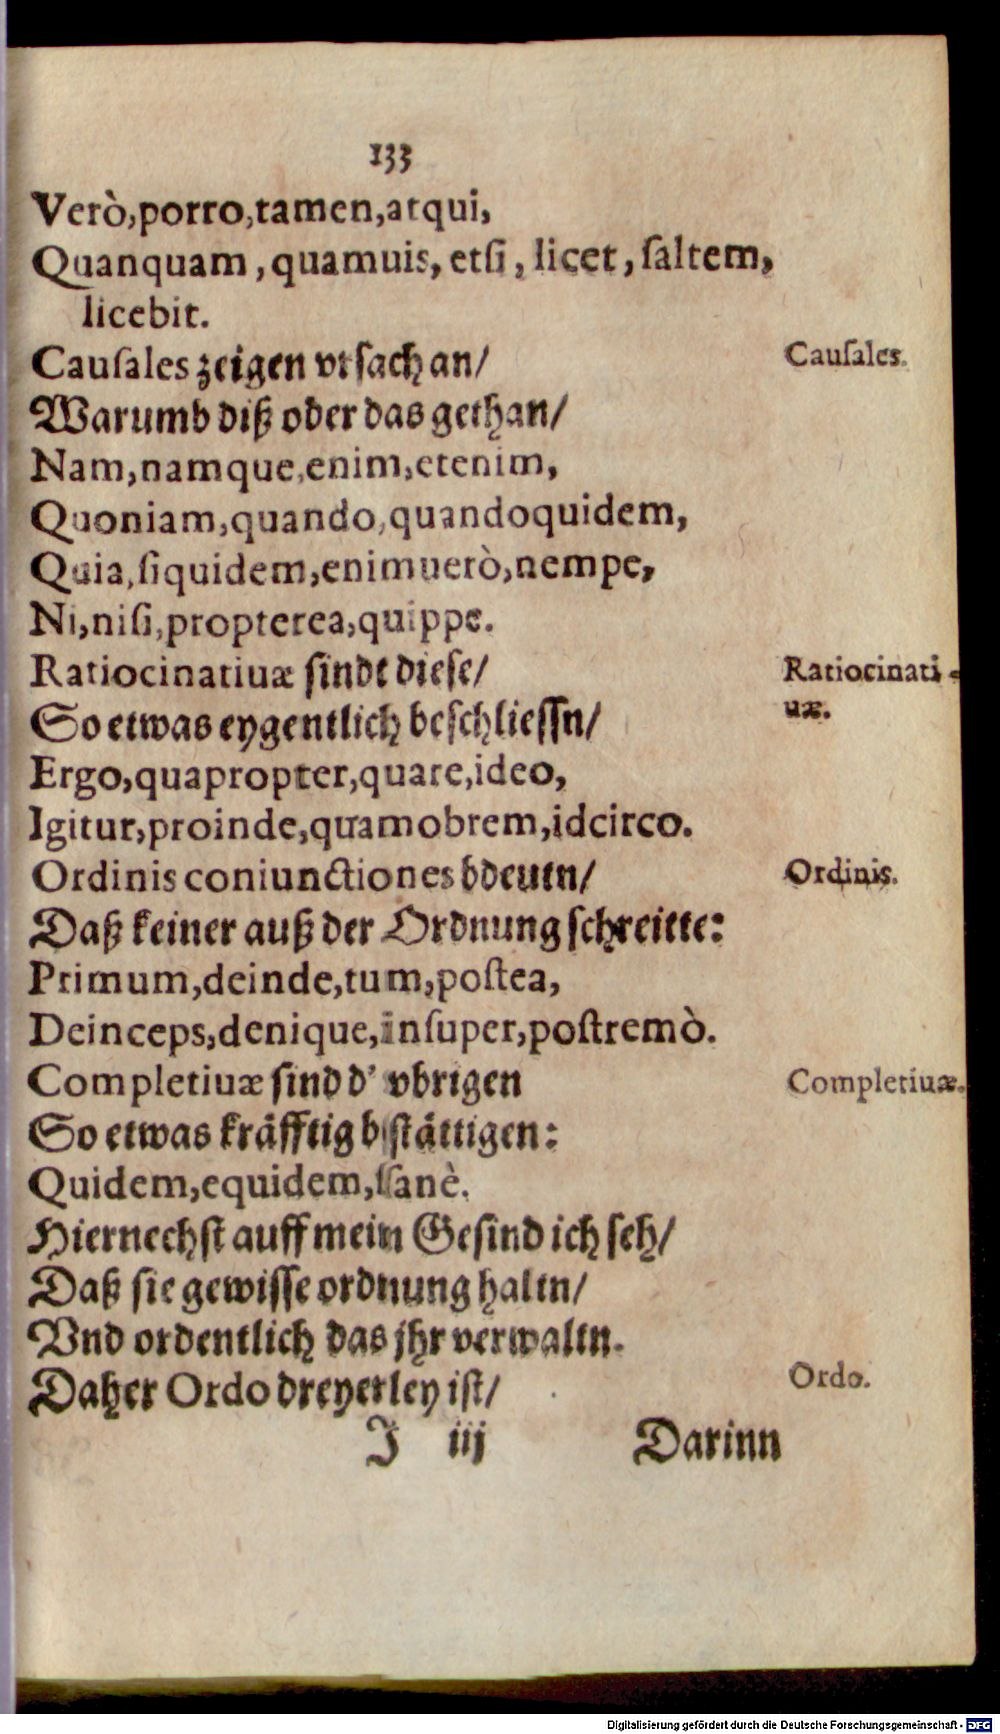 133
Verò,porro,tamen,atqui,
Quanquam, quamuis, etſi, licet, ſaltem,
licebit.
Cauſales zeigen vrſach an/
Cauſales.
Warumb diß oder das gethan/
Nam,namque,enim,etenim,
Quoniam,quando,quandoquidem,
Quia,ſiquidem,enimuerò,nempe,
Ni,niſi,propterea,quippe.
Ratiocinatiuæ ſindt dieſe/
Ratiocinati-
uæ.
So etwas eygentlich beſchlieſſn/
Ergo,quapropter,quare,ideo,
Igitur,proinde,quamobrem,idcirco.
Ordinis coniunctiones bdeutn/
Ordinis.
Daß keiner auß der Ordnung ſchreitte:
Primum,deinde,tum,poſtea,
Deinceps,denique,inſuper,poſtremò.
Completiuæ ſind d' vbrigen
Completiuæ.
So etwas kräfftig bſtättigen:
Quidem,equidem,ſanè.
Hiernechſt auff mein Geſind ich ſeh/
Daß ſie gewiſſe ordnung haltn/
Vnd ordentlich das jhr verwaltn.
Daher Ordo dreyerley iſt/
Ordo.
J iij
Darinn
Digitalisierung gefördert durch die Deutsche Forschungsgemeinschaft - DFG